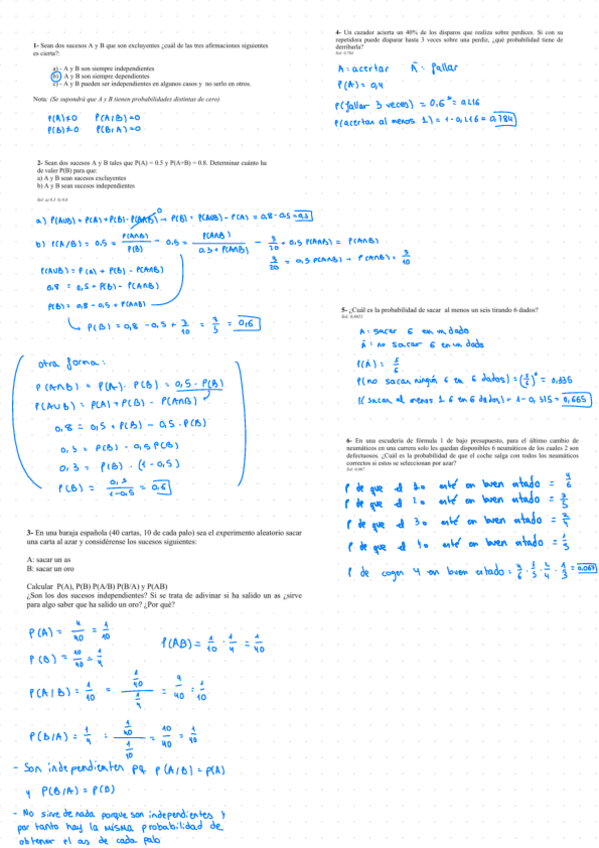 1- Sean dos sucesos A y B que son excluyentes ¿cuál de las tres afirmaciones siguientes
es cierta?:
a) - A y B son siempre independientes
b) A y B son siempre dependientes
c) - A y B pueden ser independientes en algunos casos y no serlo en otros.
Nota: (Se supondrá que A y B tienen probabilidades distintas de cero)
P(A)≠0 P(A/B)=0
P(B)≠0 P(B/A)=0
2- Sean dos sucesos A y B tales que P(A) = 0.5 y P(A+B) = 0.8. Determinar cuánto ha
de valer P(B) para que:
a) A y B sean sucesos excluyentes
b) A y B sean sucesos independientes
a) P(AUB) = P(A) + P(B) - P(A∩B) → P(B) = P(AUB) - P(A) = 0,8 - 0,5 = 0,3
b) P(A/B) = 0,5 = P(A∩B)/P(B) → 0,5 = P(A∩B)/(0,3 + P(A∩B)) → 3/20 + 0,5 P(A∩B) = P(A∩B)
3/20 = 0,5 P(A∩B) → P(A∩B) = 3/10
P(AUB) = P(A) + P(B) - P(A∩B)
0,8 = 0,5 + P(B) - P(A∩B)
P(B) = 0,8 - 0,5 + P(A∩B)
↳ P(B) = 0,8 - 0,5 + 3/10 = 3/5 = 0,6
otra forma:
P(A∩B) = P(A) · P(B) = 0,5 · P(B)
P(AUB) = P(A) + P(B) - P(A∩B)
0,8 = 0,5 + P(B) - 0,5 · P(B)
0,3 = P(B) - 0,5 P(B)
0,3 = P(B) · (1 - 0,5)
P(B) = 0,3/(1-0,5) = 0,6
3- En una baraja española (40 cartas, 10 de cada palo) sea el experimento aleatorio sacar
una carta al azar y considérense los sucesos siguientes:
A: sacar un as
B: sacar un oro
Calcular P(A), P(B) P(A/B) P(B/A) y P(AB)
¿Son los dos sucesos independientes? Si se trata de adivinar si ha salido un as ¿sirve
para algo saber que ha salido un oro? ¿Por qué?
P(A) = 4/40 = 1/10
P(AB) = 1/10 · 1/4 = 1/40
P(B) = 10/40 = 1/4
P(A/B) = 1/10 = (1/40)/(1/4) = 4/40 = 1/10
P(B/A) = 1/4 = (1/40)/(1/10) = 10/40 = 1/4
- Son independientes pq P(A/B) = P(A)
y P(B/A) = P(B)
- No sirve de nada porque son independientes y
por tanto hay la misma probabilidad de
obtener el as de cada palo
4- Un cazador acierta un 40% de los disparos que realiza sobre perdices. Si con su
repetidora puede disparar hasta 3 veces sobre una perdiz, ¿qué probabilidad tiene de
derribarla?
Sol: 0,784
A: acertar Ā: fallar
P(A) = 0,4
P(fallar 3 veces) = 0.6³ = 0,216
P(acertar al menos 1) = 1 - 0,216 = 0,784
5- ¿Cuál es la probabilidad de sacar al menos un seis tirando 6 dados?
A: sacar 6 en un dado
Ā: no sacar 6 en un dado
P(Ā) = 5/6
P(no sacar ningún 6 en 6 dados) = (5/6)⁶ = 0,335
P(sacar al menos 1 6 en 6 dados) = 1 - 0,335 = 0,665
6- En una escudería de fórmula 1 de bajo presupuesto, para el último cambio de
neumáticos en una carrera solo les quedan disponibles 6 neumáticos de los cuales 2 son
defectuosos. ¿Cuál es la probabilidad de que el coche salga con todos los neumáticos
correctos si estos se seleccionan por azar?
Sol: 0,067
P de que el 1o esté en buen estado = 4/6
P de que el 2o esté en buen estado = 3/5
P de que el 3o esté en buen estado = 2/4
P de que el 4o esté en buen estado = 1/3
P de coger 4 en buen estado = 4/6 · 3/5 · 2/4 · 1/3 = 0,067